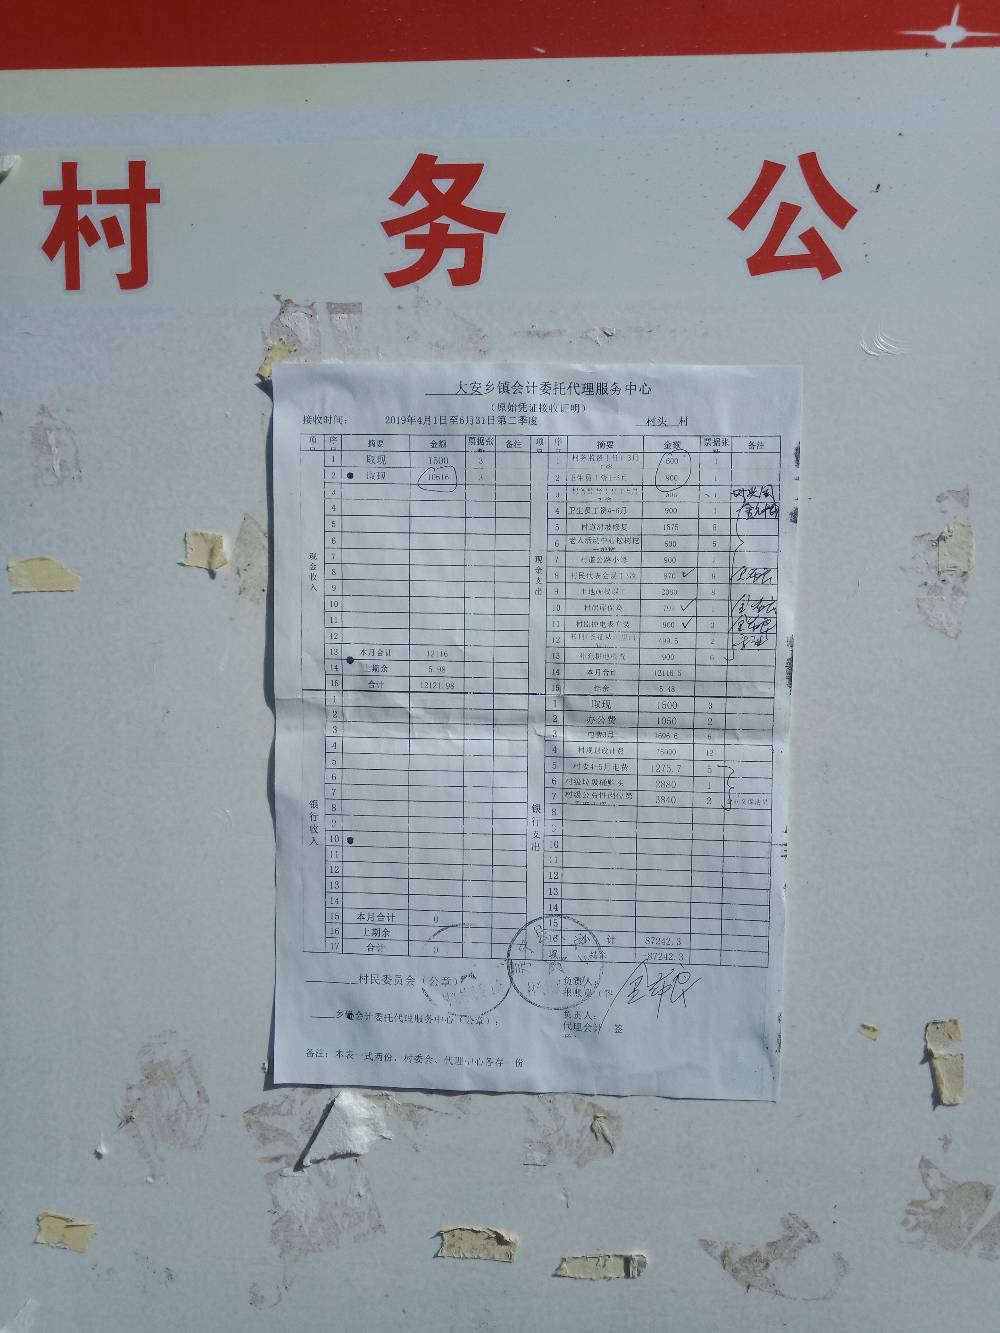 村务公
大安乡镇会计委托代理服务中心
（原始凭证接收证明）
接收时间： 2019年4月1日至6月31日第二季度 村头 村
项 序 摘要 金额 票据张 备注 项 序 摘要 金额 票据张 备注
现金收入
1 取现 1500 3
2 取现 10616 3
3
4
5
6
7
8
9
10
11
12
13 本月合计 12116
14 上期余 5.98
15 合计 12121.98
现金支出
1 600 1
2 卫生员工资1-3月 900 1
3 1
4 卫生员工资4-6月 900 1
5 村道滑坡修复 1575 6
6 老人活动中心 630 5
7 村道公路小修 900
8 村民代表会误工 870 8
9 土地 2080 8
10
11 村监控电表安装 900 3
12 490.5 2
13 900 6
14 本月合计 12116.5
15 结余 5.48
银行收入
1
2
3
4
5
6
7
8
9
10
11
12
13
14
15 本月合计 0
16 上期余
17 合计 0
银行支出
1 取现 1500 3
2 办公费 1050 2
3 电费3月 1696.6 6
4 村规划设计费 75000 12
5 村委4-5月电费 1275.7 5
6 村级垃圾桶 2880 1
7 村级公益性岗位 3840 2
8
9
10
11
12
13
14
15
16 小 计 87242.3
87242.3
村民委员会（公章）
负责人：
报账员（签
乡镇会计委托代理服务中心（公章）：
负责人：
代理会计 签
备注：本表一式两份，村委会、代理中心各存 份